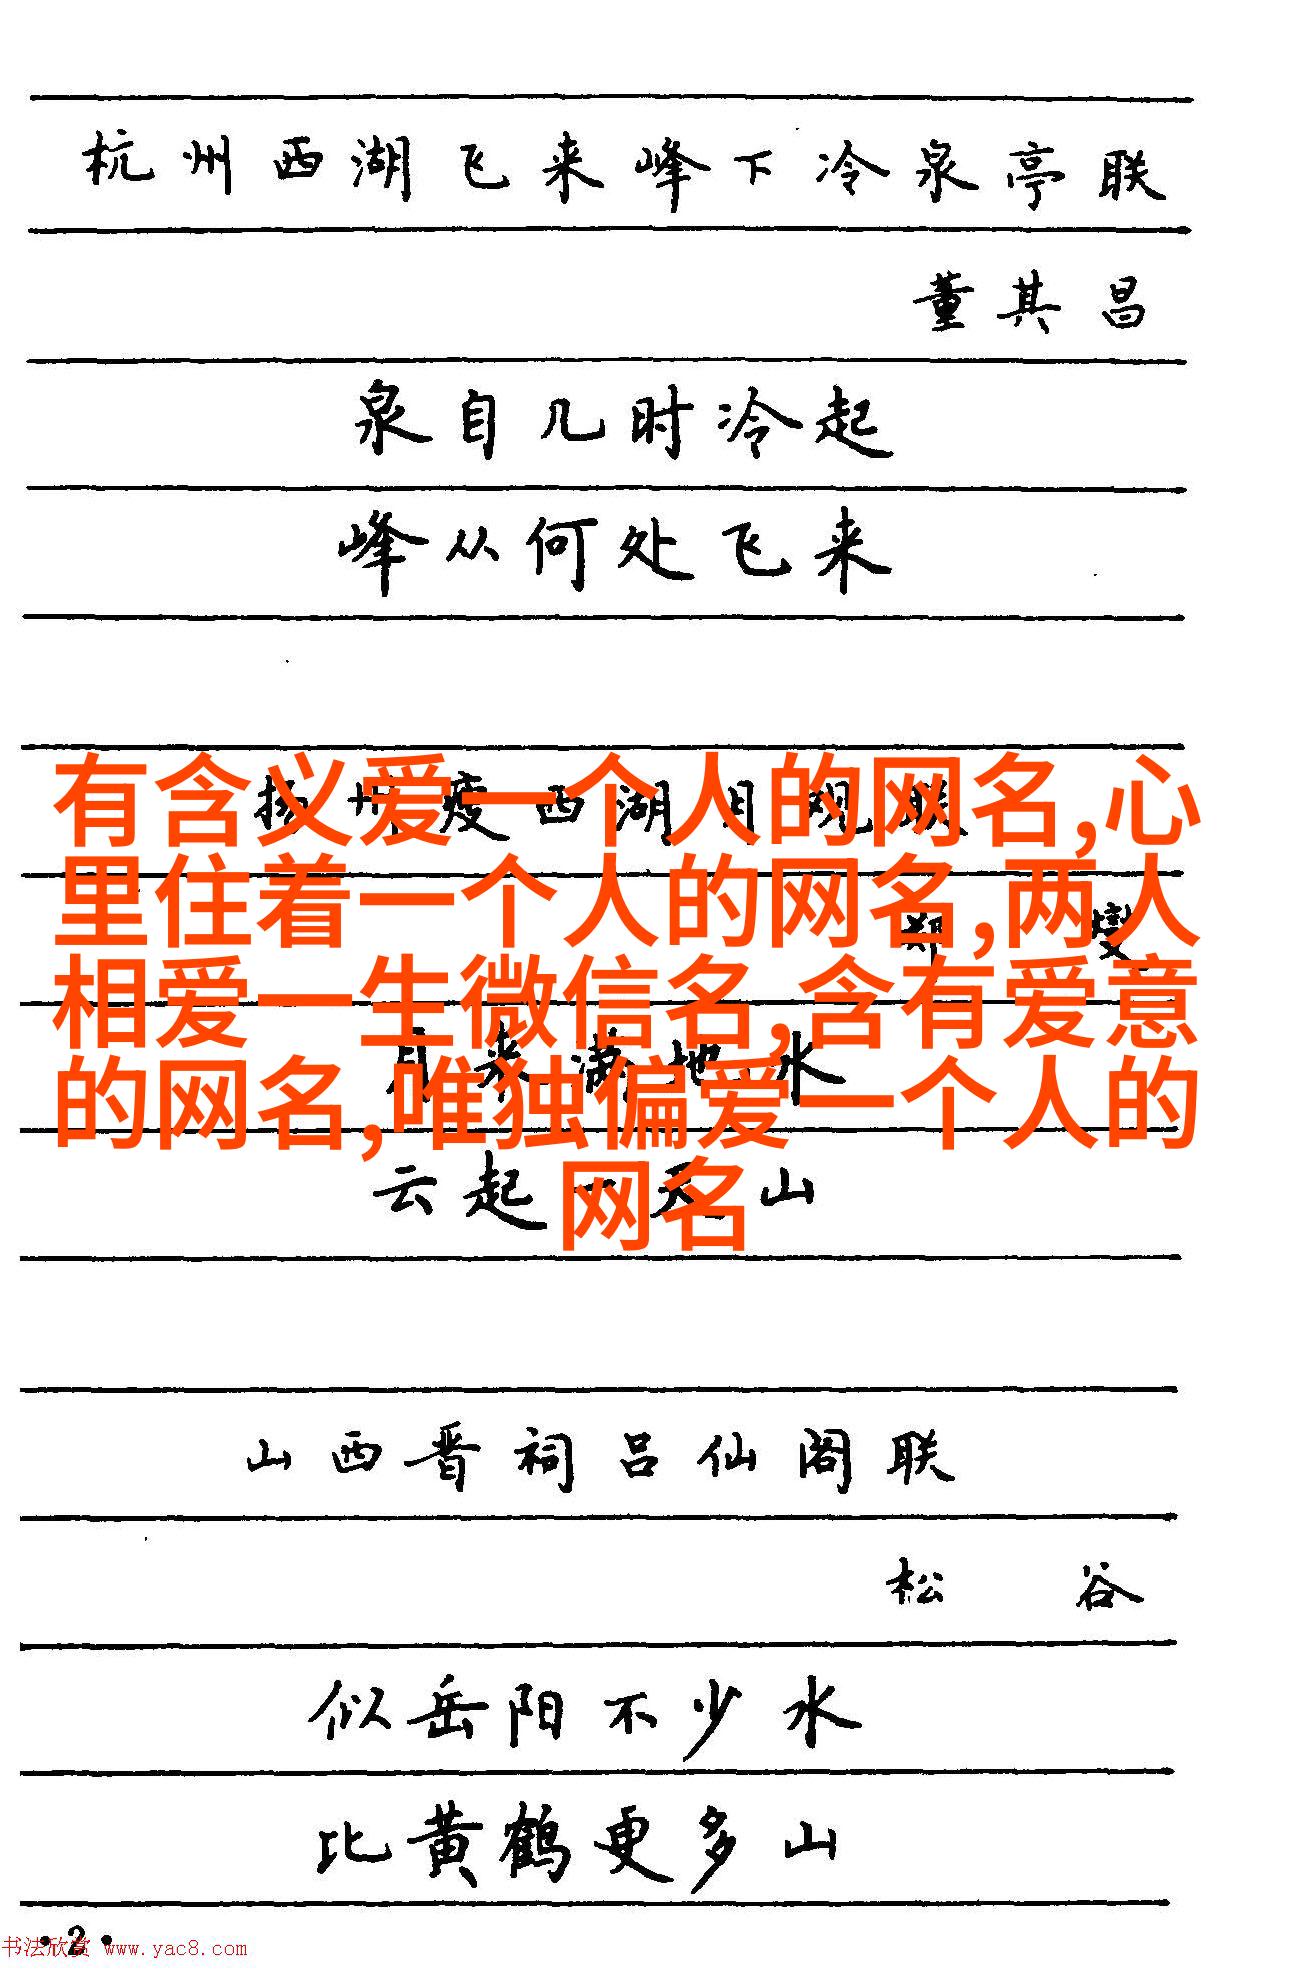 杭州西湖飞来峰下冷泉亭联
董其昌
泉自几时冷起
峰从何处飞来
扬州瘦西湖月观联
有含义爱一个人的网名,心
里住着一个人的网名,两人
郑燮
相爱一生微信名,含有爱意
月来满地水
的网名,唯独偏爱一个人的
云起一天山
网名
山西晋祠吕仙阁联
松谷
似岳阳不少水
比黄鹤更多山
·2·
书法欣赏 www.yac8.com